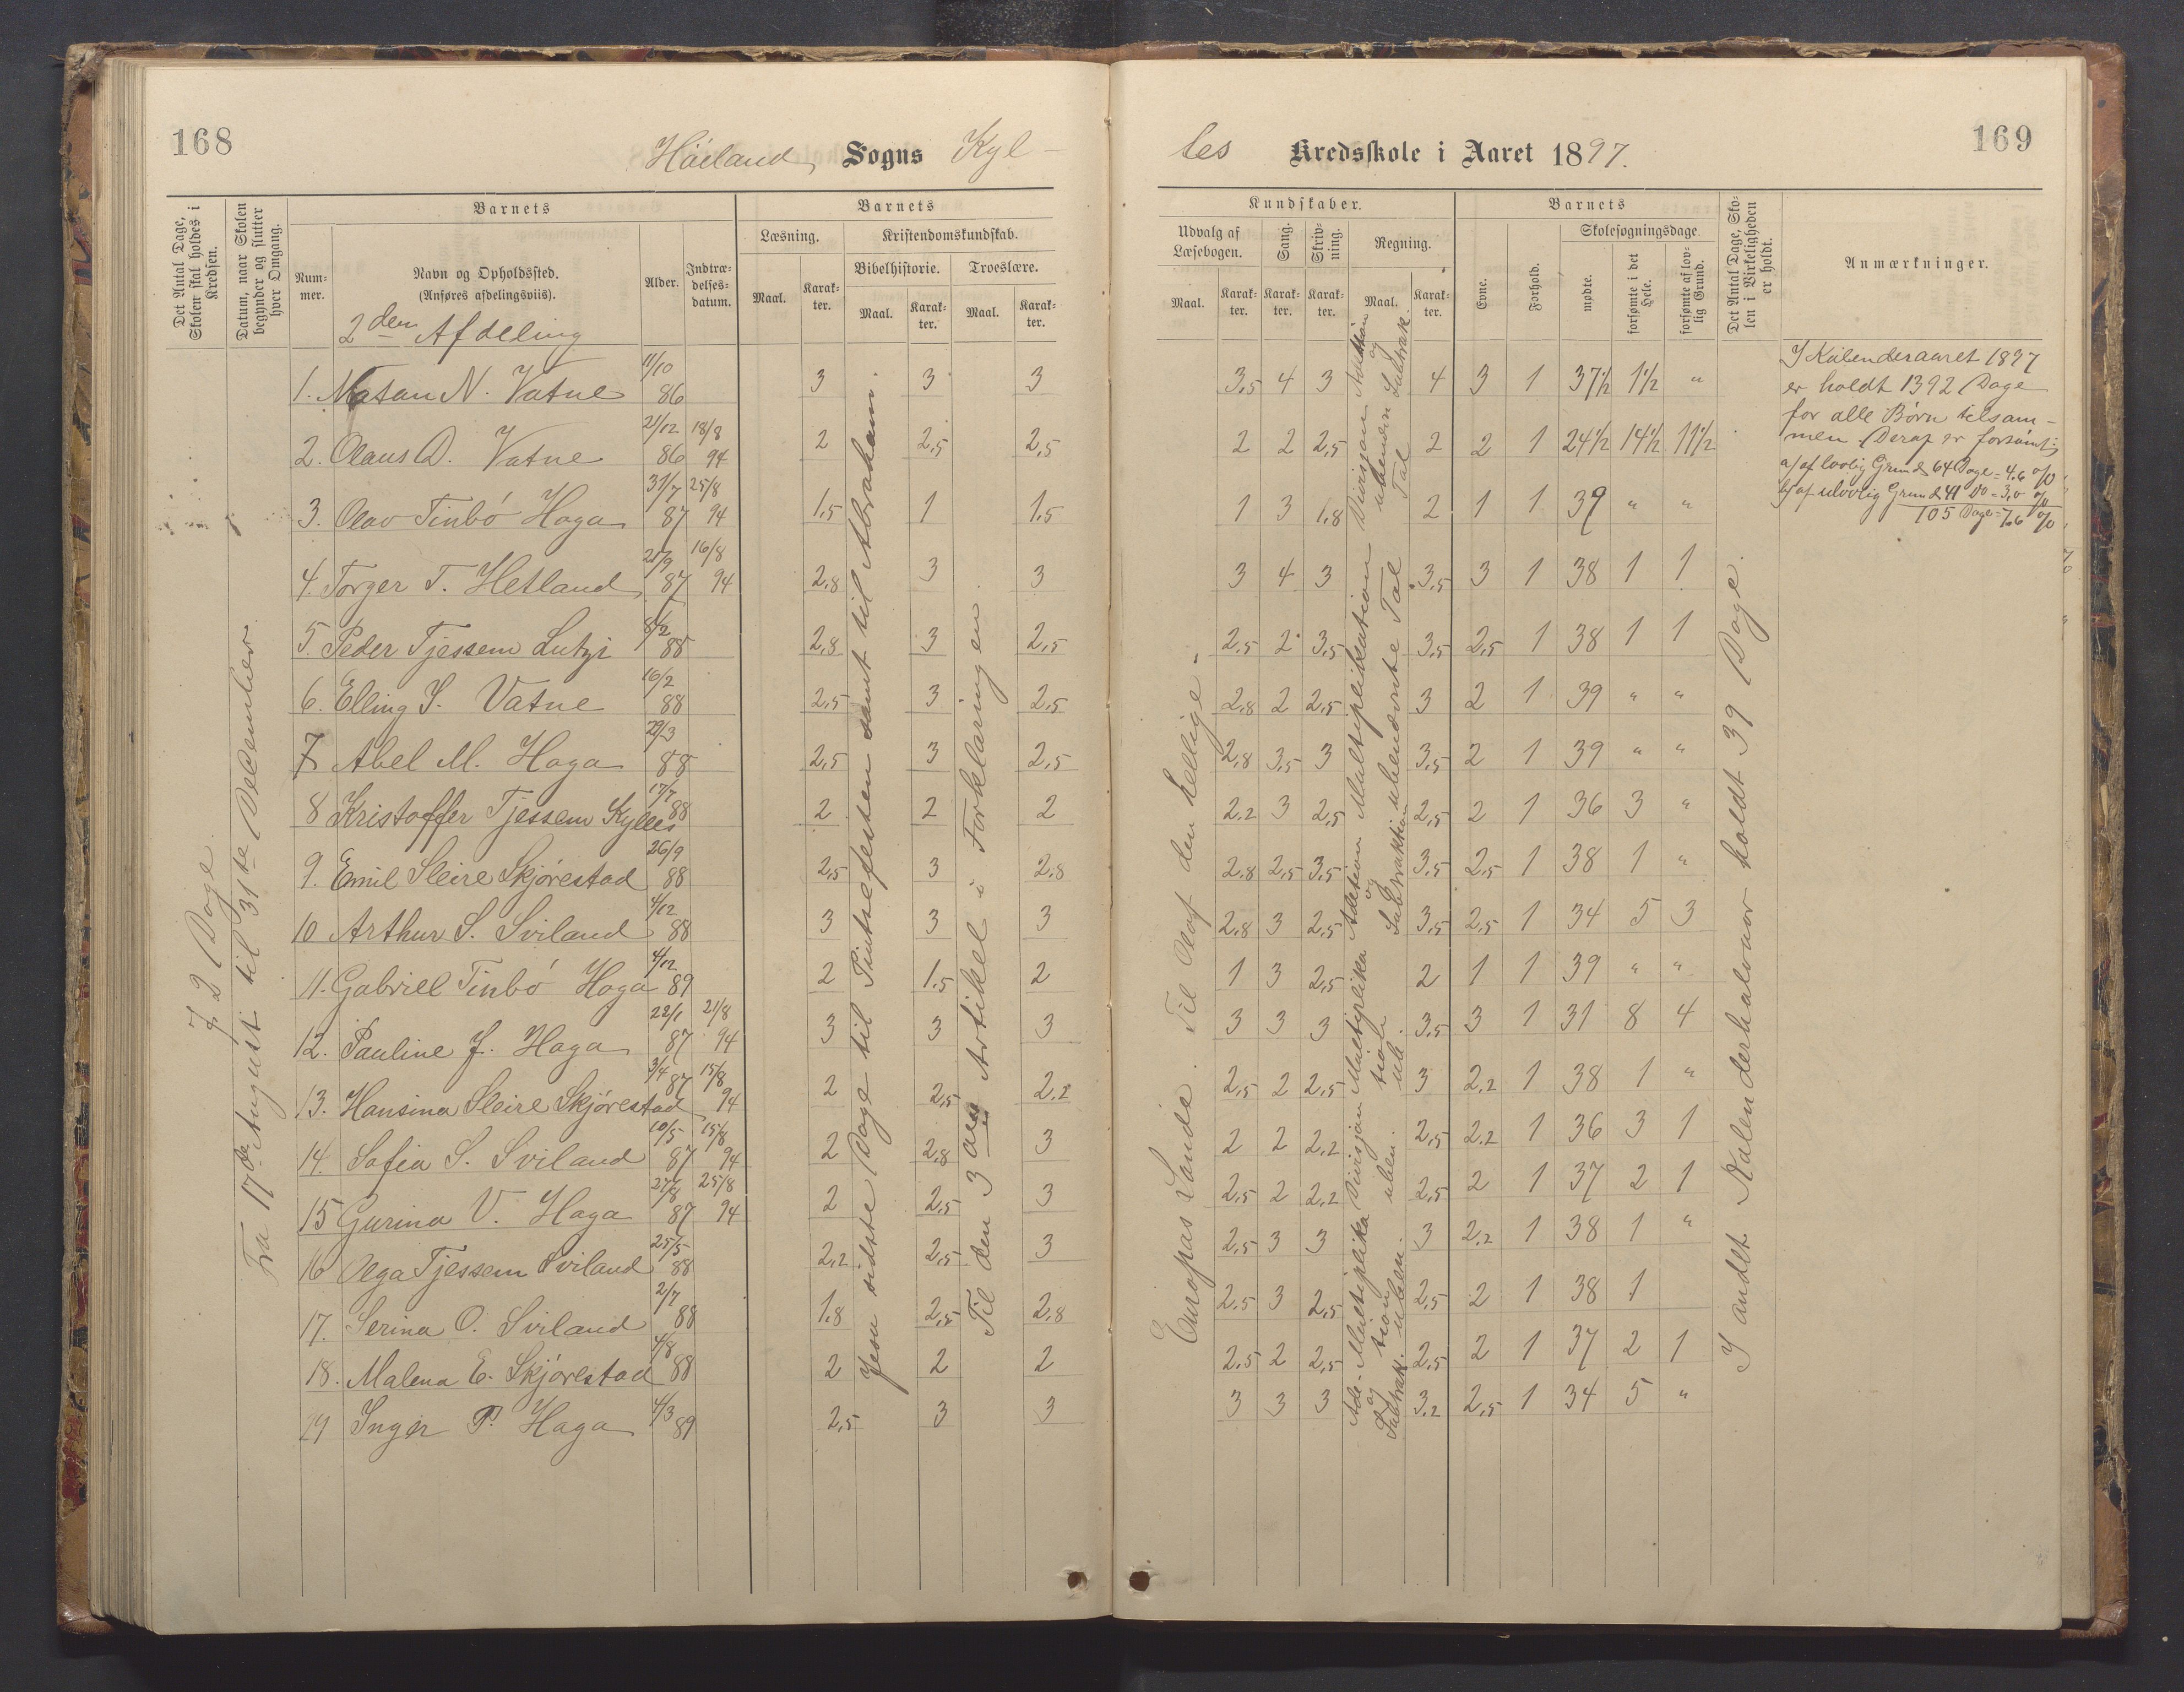 168
Höiland Sogns Kyl-
les Kredsskole i Aaret 1897.
169
Det Antal Dage, Skolen skal holdes i Kredsen.
Datum, naar Skolen begynder og slutter hver Omgang.
Barnets
Num-
mer.
Navn og Opholdssted.
(Anføres afdelingsviis).
Alder.
Indtræ-
delses-
datum.
Barnets
Læsning.
Maal.
Karak-
ter.
Kristendomskundskab.
Bibelhistorie.
Maal.
Karak-
ter.
Troeslære.
Maal.
Karak-
ter.
Kundskaber.
Udvalg af
Læsebogen.
Maal.
Karak-
ter.
Sang.
Karak-
ter.
Skriv-
ning.
Karak-
ter.
Regning.
Maal.
Karak-
ter.
Barnets
Evne.
Forhold.
Skolesøgningsdage
mødte.
forsømte i det Hele.
forsømte af lov-
lig Grund.
Det Antal Dage, Sko-
len i Virkeligheden
er holdt.
Anmærkninger.
2den Afdeling
72 Dage
Fra 17de August til 31te December.
1. Natan N. Vatne 11/10 86 3 3 3 3,5 4 3 4 3 1 37½ 1½ "
2. Olaus D. Vatne 21/12 86 18/8 94 2 2,5 2,5 2 2 2,5 2 2 1 24½ 14½ 11½
3. Olav Tinbó Haga 31/7 87 25/8 94 1,5 1 1,5 1 3 1,8 2 1 1 39 " "
4. Torger T. Hetland 21/9 87 16/8 94 2,8 3 3 3 4 3 3,5 3 1 38 1 1
5. Peder Tjessem Lutsi 8/2 88 2,8 3 2,5 2,5 2 3,5 3,5 2,5 1 38 1 1
6. Elling S. Vatne 16/2 88 2,5 3 2,5 2,8 2 2,5 3 2 1 39 " "
7 Abel M. Haga 29/3 88 2,5 3 2,5 2,8 3,5 3 3,5 2 1 39 " "
8 Kristoffer Tjessem Kylles 17/7 88 2 2 2 2,2 3 2,5 2,5 2 1 36 3 "
9. Emil Sleire Skjórestad 26/9 88 2,5 3 2,8 2,8 2,5 3,5 3,5 2,5 1 38 1 "
10 Arthur S. Sviland 4/12 88 3 3 3 2,8 3 2,5 3,5 2,5 1 34 5 3
11. Gabriel Tinbó Haga 4/12 89 2 1,5 2 1 3 2,5 2 1 1 39 " "
12. Pauline J. Haga 22/1 87 21/8 94 3 3 3 3 3 3 3,5 3 1 31 8 4
13. Hansina Sleire Skjórestad 3/4 87 15/8 94 2 2,5 2,2 2,5 2 2,5 3 2,2 1 38 1 "
14. Sofia S. Sviland 10/5 87 15/8 94 2 2,8 3 2 2 2,2 2,5 2,2 1 36 3 1
15 Gurina V. Haga 27/8 87 25/8 94 2 2,5 3 2,5 2 2,2 2,5 2 1 37 2 1
16 Olga Tjessem Sviland 25/5 88 2,2 2,5 3 2,5 3 3 3 2,2 1 38 1 "
17. Serina O. Sviland 2/7 88 1,8 2,5 2,8 2,5 3 2,5 2,5 2 1 38 1
18. Malena E. Skjórestad 4/8 88 2 2 2 2,5 2 2,5 2,5 2 1 37 2 1
19 Inger P. Haga 4/3 89 2,5 3 3 3 3 3 3,2 2,5 1 34 5 "
Jesu sidste Dage til Pintsefesten samt til Abraham.
Til den 3die Artikel i Forklaringen.
Europas Lande. Til Olaf den hellige.
Addition og Subtrak.
Divisjon ubenævn Tal
Addition Multiplikation og Subtraktion ubenævnte Tal
Divisjon Multiplikation uben.
Add- Multiplikation og Subtrak. uben.
I andet Kalenderhalvaar holdt 39 Dage.
I Kalenderaaret 1897
er holdt 1392 Dage
for alle Børn tilsam-
men. Deraf er forsømt:
a) af lovlig Grund 64 Dage = 4,6 %
b) af ulovlig Grund 41 Do = 3,0 %
105 Dage = 7,6 %